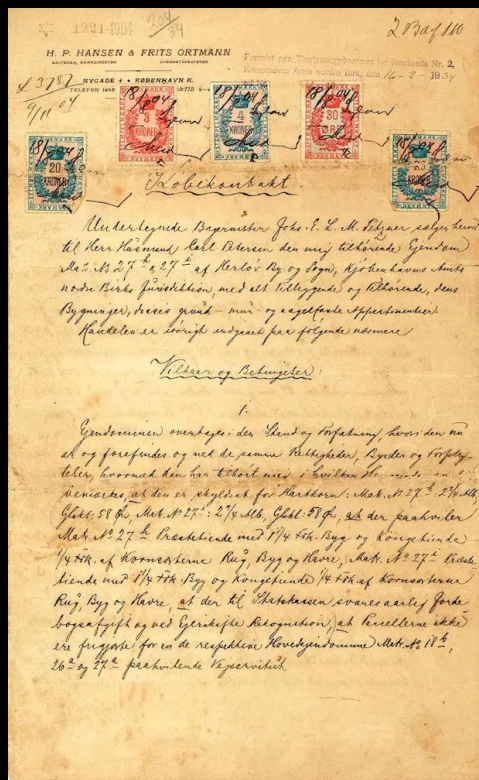 1221-1904
204/34
2 Baf 110
H. P. HANSEN & FRITS ORTMANN
SAGFØRER, OVERRETSSAGFØRER
NYGADE 4 • KØBENHAVN K.
TELEFON
Nr. 2,
Københavns Amts nordre Birk, den 16-2-1934
3787
9/11 04
20 KRONER
3 KRONER
4 KRONER
30 ØRE
Købekontrakt.
Undertegnede Bagermester Johs. E. L. M. sælger herved
til Herr Husmand Karl Petersen den mig tilhørende Ejendom
Matr. No 27 & 27 af Herløv By og Sogn, Kjøbenhavns Amts
nordre Birks Jurisdiktion, med alt Tilliggende og Tilhørende, dens
Bygninger, disses grund- mur- og nagelfaste Appertinentier.
Handelen er iøvrigt indgaaet paa følgende nærmere
Vilkaar og Betingelser:
1.
Ejendommen overtages i den Stand og Forfatning, hvori den nu
er og forefindes og med de samme Rettigheder, Byrder og Forplig-
telser, hvormed den har tilhørt mig, i hvilken
bemærkes, at den er skyldsat for Hartkorn: Matr. No 27 2 1/4 Alb,
Glskt: 58 Øre, Matr. No 27: 2 1/4 Alb, Glskt: 58 Øre, at der paahviler
Matr. No 27 Præstetiende med 1 1/4 Fdk. Byg og Kongetiende
1/4 Fdk. af Kornsorterne Rug, Byg og Havre, Matr. No 27 Præste-
tiende med 1 1/4 Fdk. Byg og Kongetiende 1/4 Fdk. af Kornsorterne
Rug, Byg og Havre, at der til Statskassen svares aarlig Jorde-
bogsafgift og ved Ejerskifte Rekognition, at Parcellerne ikke
ere frigjorte for en de respektive Hovedejendomme Matr. No 18 b,
26 a og 27 a paahvilende Vejservitut